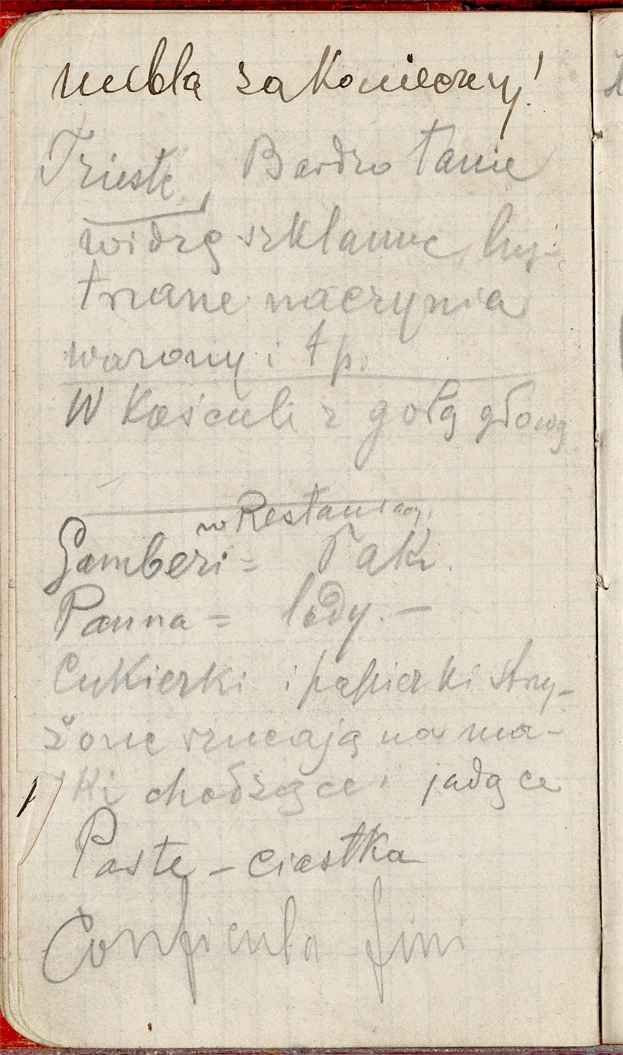 meblą zakonieczny!
Trieste, Bardzo tanie
widzę szklanne, lus-
trzane naczynia
wazony i t p.
W Kościele z gołą głową
w Restauracy.
Gamberi = Rak.
Panna = lody. —
Cukierki i papierki strzy-
żone rzucają na ma-
ski chodzące i jadące
Paste - ciastka